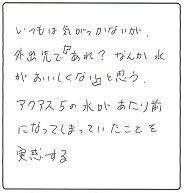 いつもは気がつかないが、
外出先で「あれ？なんか水
がおいしくない」と思う。
アクアス5の水があたり前
になってしまっていたことを
実感する